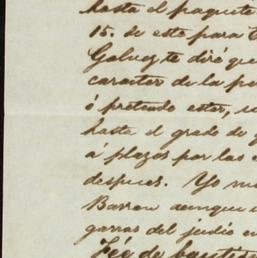 hasta el paquete
15. de este para
Galvez te diré que
caracter de la
ó pretende ester,
hasta el grado de
á plazos por las
despues. Yo
Barron aunque
garras del judio en
Fée de bautis